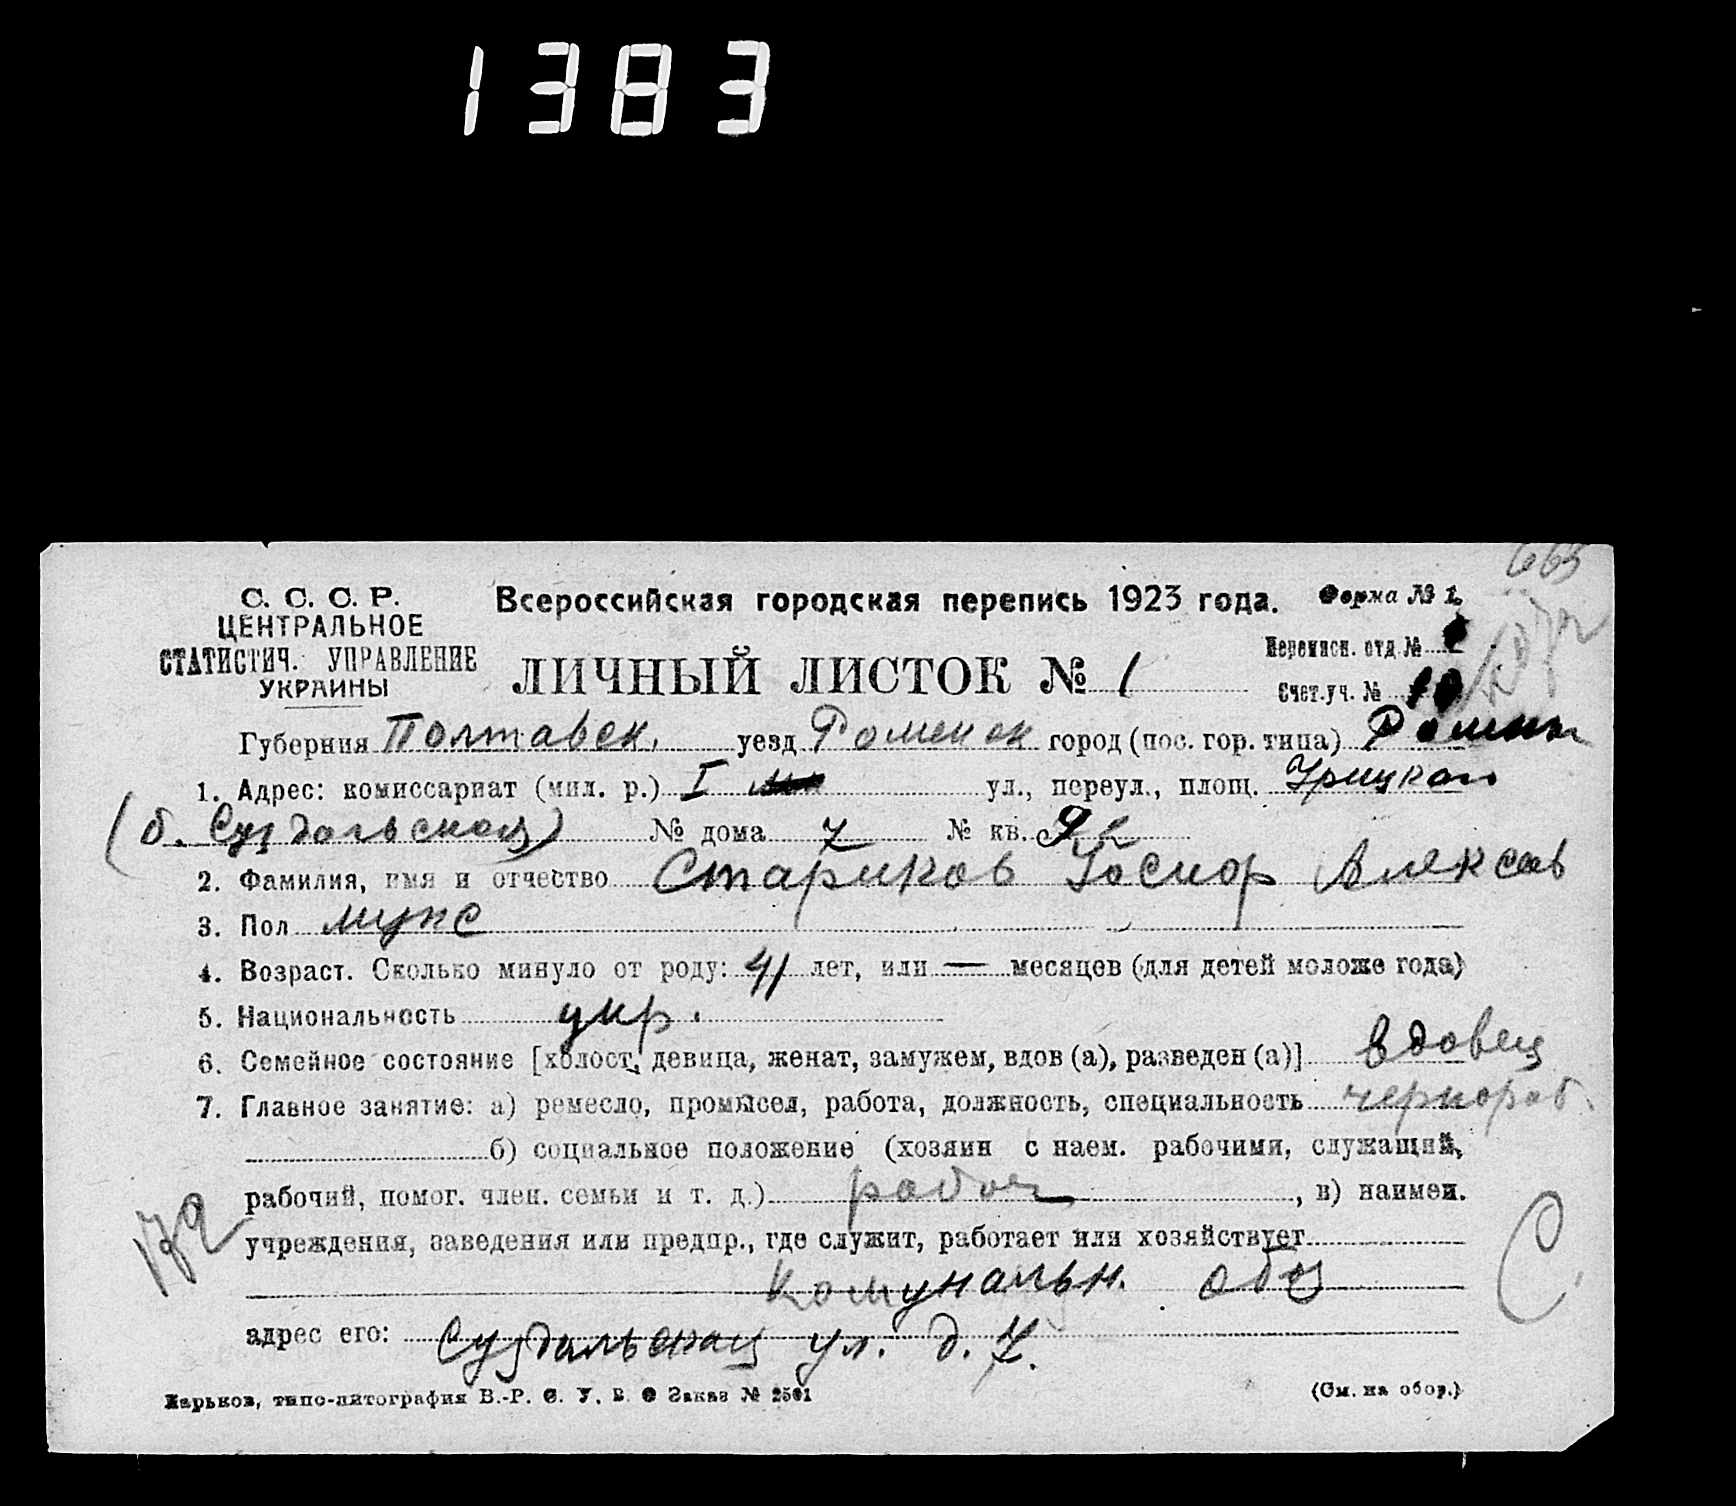 1383
663
С. С. С. Р.
ЦЕНТРАЛЬНОЕ
СТАТИСТИЧ. УПРАВЛЕНИЕ
УКРАИНЫ
Всероссийская городская перепись 1923 года.
Форма № 1.
ЛИЧНЫЙ ЛИСТОК № 1
Переписн. отд. №
Счет. уч. № 10
Губерния Полтавск. уезд Роменск город (пос. гор. типа) Ромны
1. Адрес: комиссариат (мил. р.) I ул., переул., площ. Урицкого
(б. Суздальская) № дома 7 № кв.
2. Фамилия, имя и отчество Стариков Алексеев
3. Пол мужс
4. Возраст. Сколько минуло от роду: 41 лет, или — месяцев (для детей моложе года)
5. Национальность укр.
6. Семейное состояние [холост, девица, женат, замужем, вдов (а), разведен (а)] вдовец
7. Главное занятие: а) ремесло, промысел, работа, должность, специальность чернораб.
б) социальное положение (хозяин с наем. рабочими, служащий,
рабочий, помог. член. семьи и т. д.) рабоч , в) наимен.
172
учреждения, заведения или предпр., где служит, работает или хозяйствует
Комунальн. обоз
С
адрес его: Суздальская ул. д. 7.
Харьков, типо-литография В.-Р. С. У. В. О Заказ № 2501
(См. на обор.)